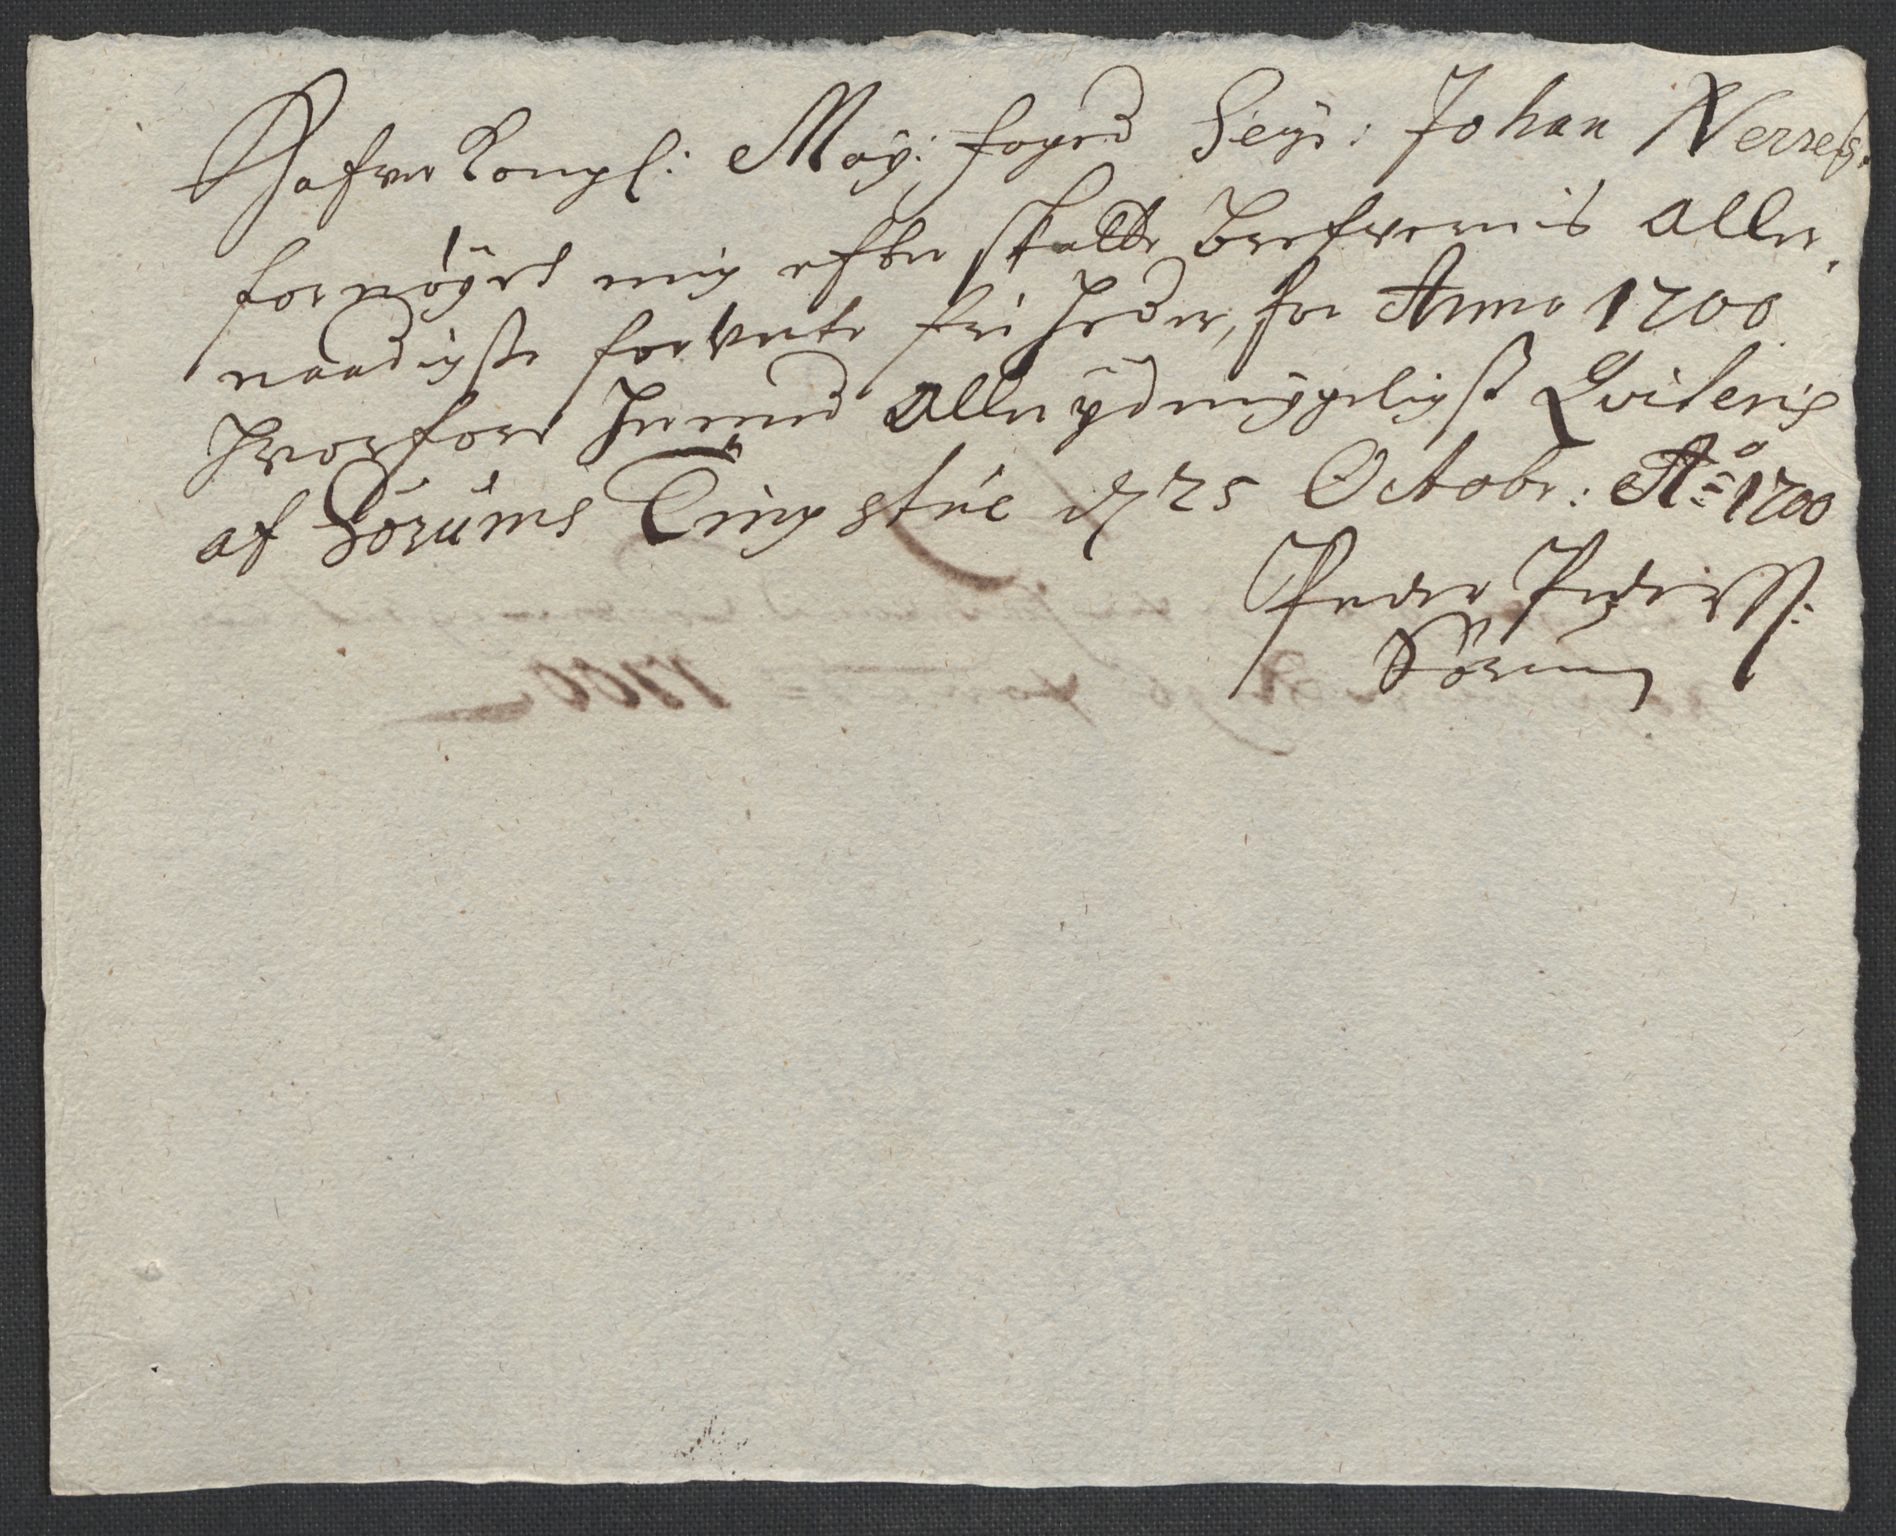 Hafver Kongl: May: foged Seigr: Johan Nerreg.
fornøyed mig efter skatte Brefvernis aller,
naadigste forUnte friheder, for Anno 1700
hvorfore hermed allerydmygeligst Qviteris
af Sørums Tingstue d 25 Octobr: Ao 1700
Peder Pederss:
Sørum